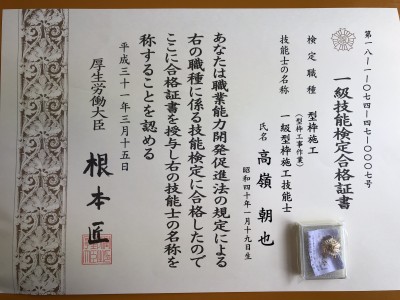 第一八-一-〇七四-四七-〇〇〇七号
一級技能検定合格証書
検定職種 型枠施工
(型枠工事作業)
技能士の名称 一級型枠施工技能士
氏名 高嶺朝也
昭和四十年一月十九日生
あなたは職業能力開発促進法の規定による
右の職種に係る技能検定に合格したので
ここに合格証書を授与し右の技能士の名称を
称することを認める
平成三十一年三月十五日
厚生労働大臣 根本匠